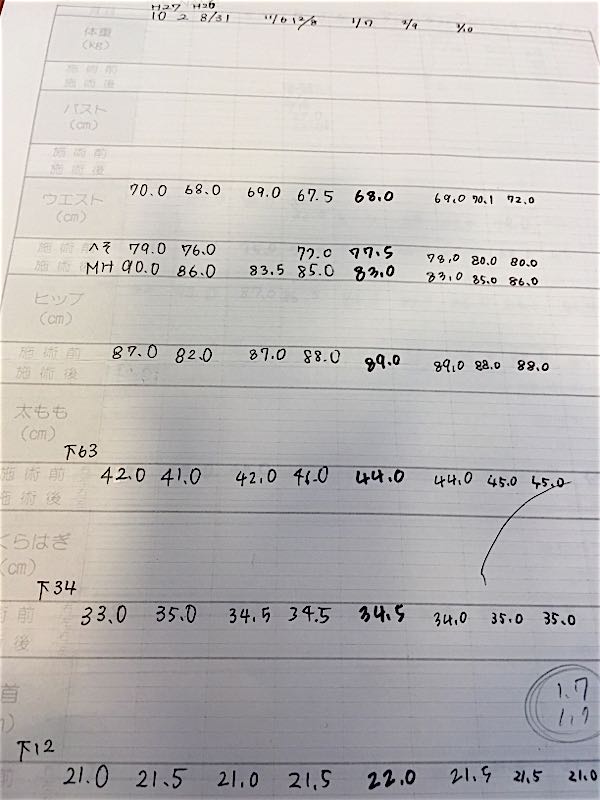 H27 H26
10 2 8/31 11/6 12/8 1/17 2/9 3/10
体重
(kg)
施術前
施術後
バスト
(cm)
施術前
施術後
ウエスト 70.0 68.0 69.0 67.5 68.0 69.0 70.1 72.0
(cm)
施術前 へそ 79.0 76.0 77.0 77.5 78.0 80.0 80.0
施術後 MH 90.0 86.0 83.5 85.0 83.0 83.0 85.0 86.0
ヒップ
(cm)
施術前 87.0 82.0 87.0 88.0 89.0 89.0 88.0 88.0
施術後
太もも
(cm)
下63
施術前 42.0 41.0 42.0 46.0 44.0 44.0 45.0 45.0
施術後
くらはぎ
(cm)
下34
術前 33.0 35.0 34.5 34.5 34.5 34.0 35.0 35.0
後
首 1.7
) 1.7
下12
前 21.0 21.5 21.0 21.5 22.0 21.5 21.5 21.0